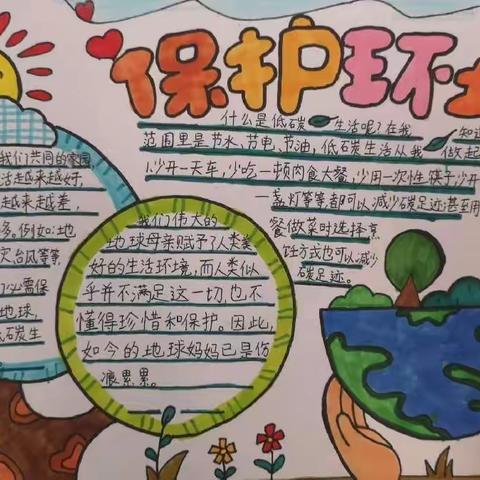 保护环境
什么是低碳生活呢?在我知道
范围里是节水、节电、节油,低碳生活从我做起
1.少开一天车,少吃一顿肉食大餐,少用一次性筷子少开
一盏灯等等都可以减少碳足迹甚至用
餐做菜时选择烹
饪方式也可以减少
碳足迹。
我们共同的家园
活越来越好,
越来越差,
多,例如:地
灾台风等等
们必需保
地球,
低碳生
我们伟大的
地球母亲赋予了人类美
好的生活环境,而人类似
乎并不满足这一切,也不
懂得珍惜和保护。因此,
如今的地球妈妈已是伤
痕累累。